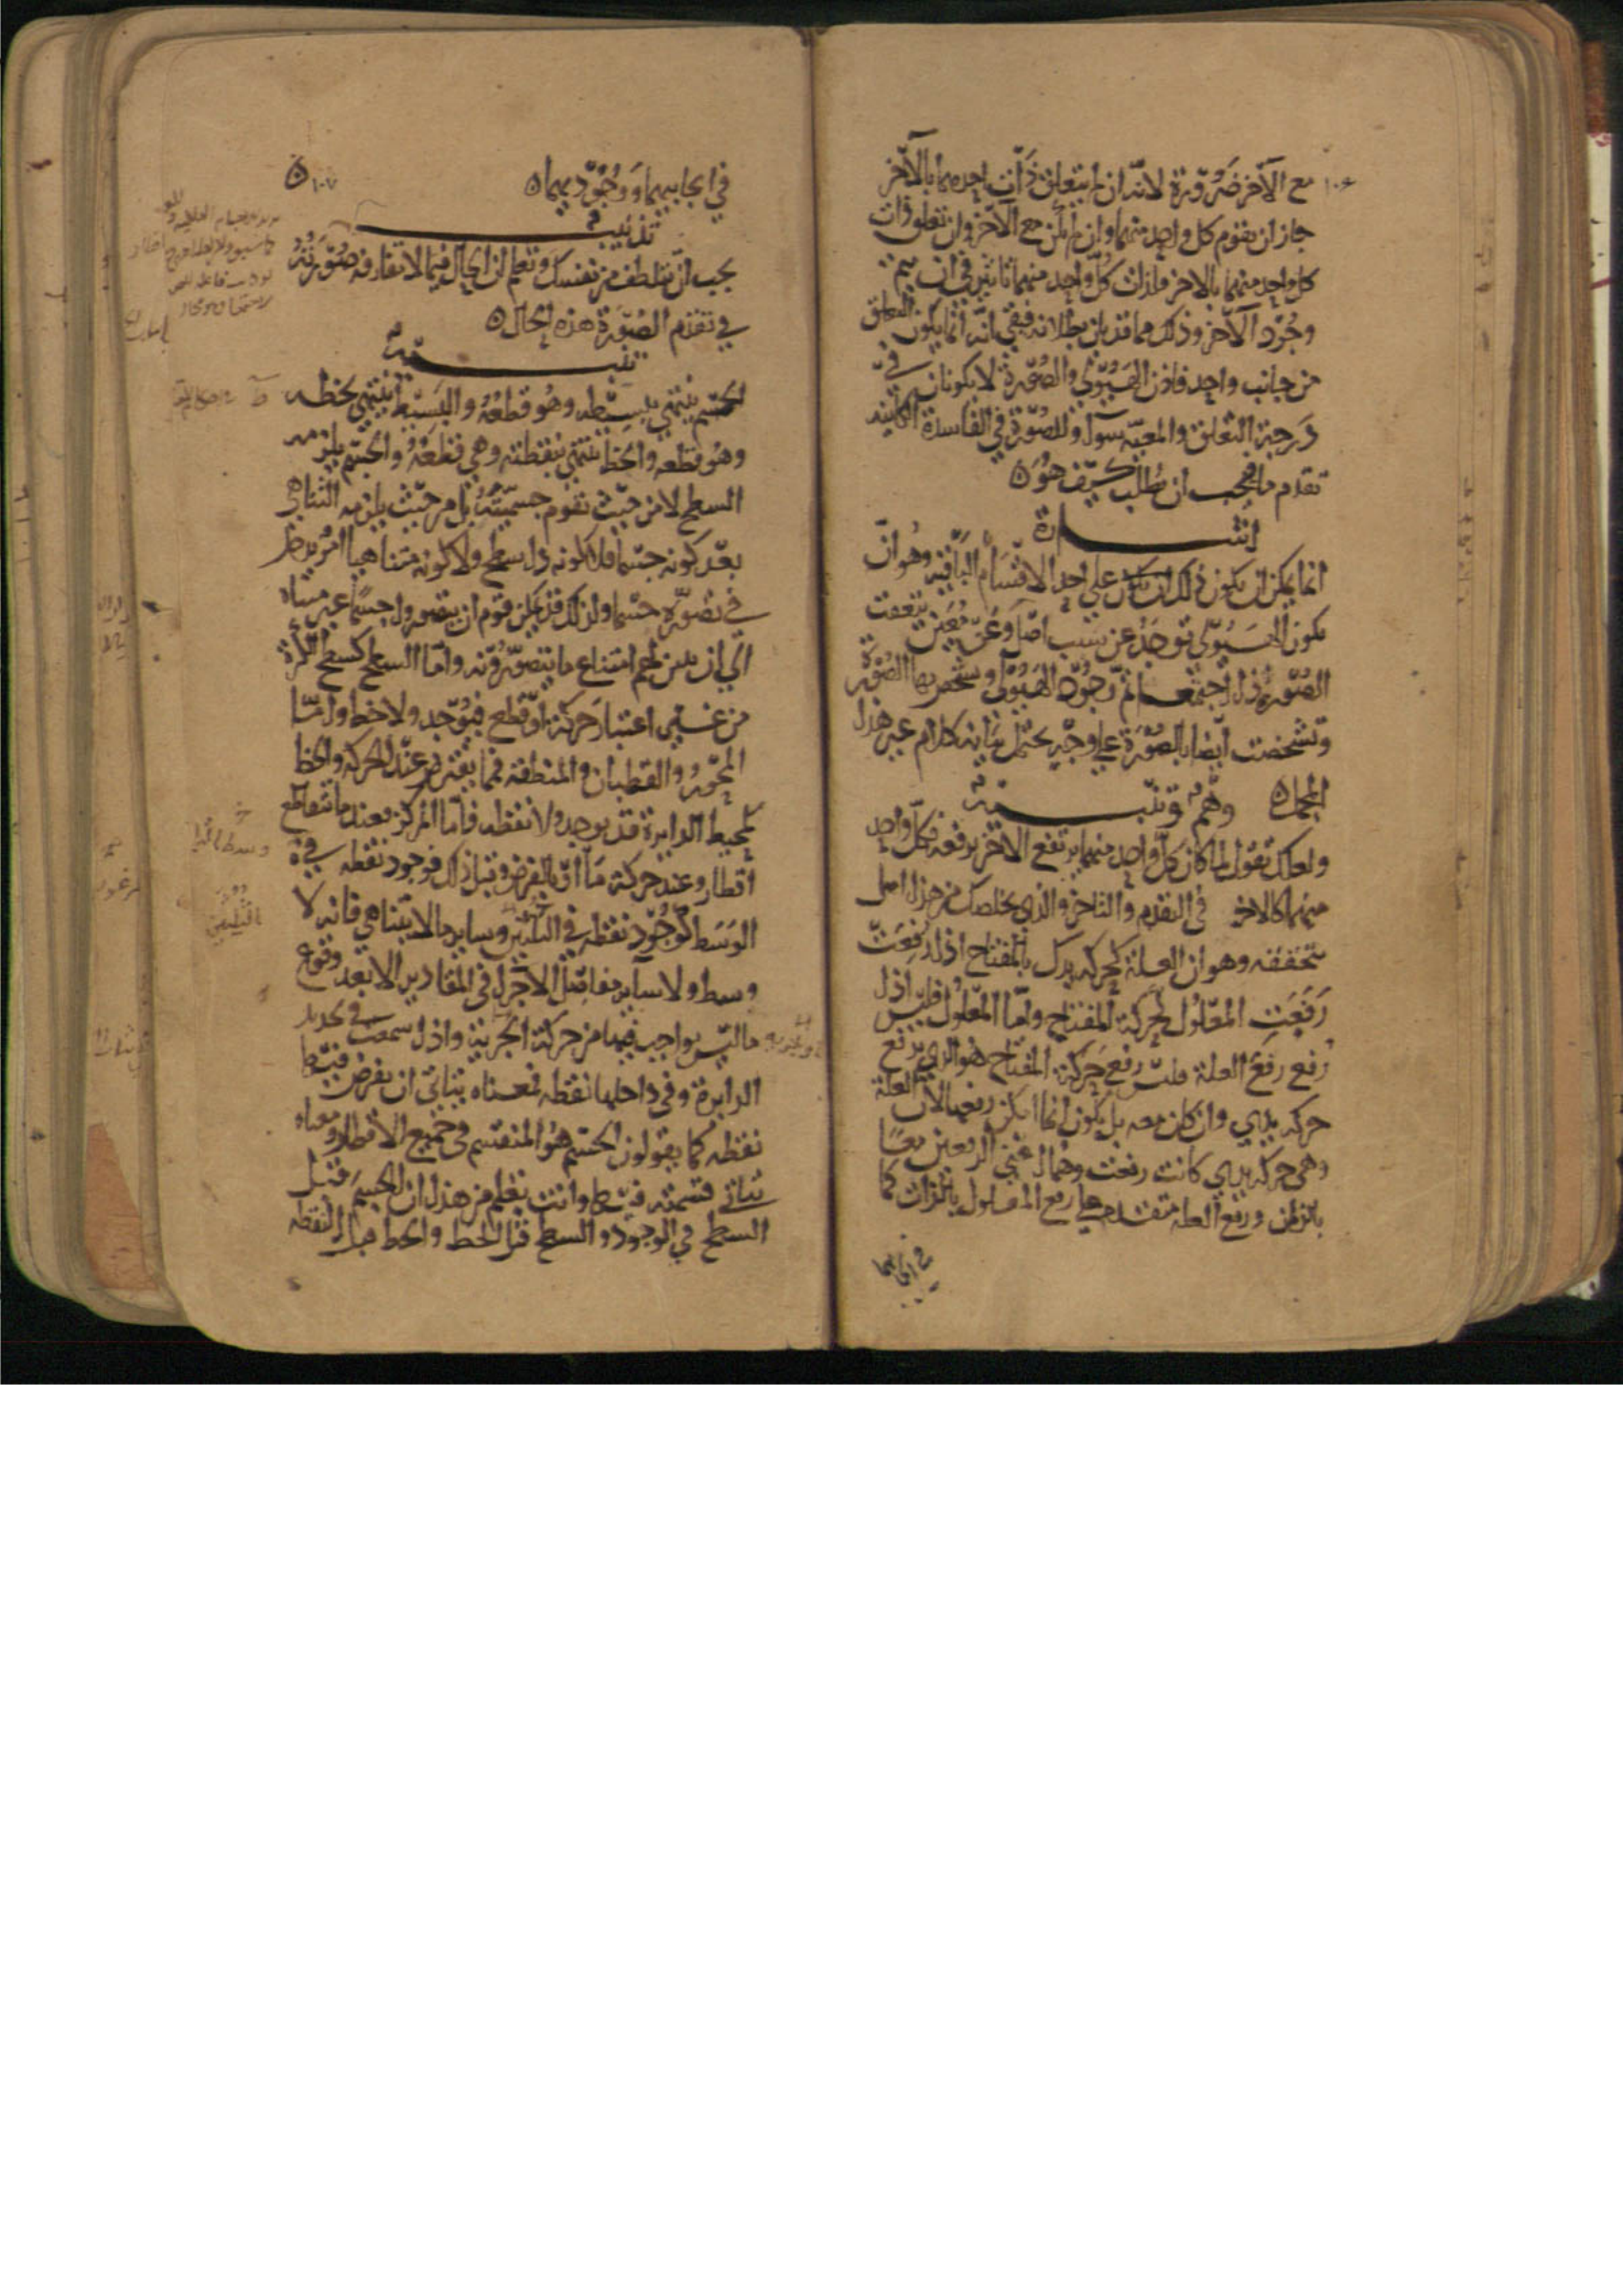 ١٠٦
مع الآخر ضرورة لانه ان لم يتعلق ذات احدهما بالآخر
جاز ان يقوم كل واحد منهما وان لم يكن مع الآخر وان تعلق ذات
كل واحد منهما بالاخر فلذات كل واحد منهما تاثير في ان يتم
وجود الآخر وذلك مما قد بان بطلانه فبقي انه انما يكون التعلق
من جانب واحد فاذن الهيولى والصورة لا يكونان في
درجة التعلق والمعية سوآ وللصورة في الفاسدة الكاينة
تقدم ما فيجب ان يطلب كيف هو ه
اشارة
انما يمكن ان يكون ذلك ان يكون على احد الاقسام الباقية وهو ان
يكون الهيولى توجد عن سبب اصل وعن معين بتعقب
الصورة اذا اجتمعا تم وجود الهيولى وتشخص بها الصورة
وتشخصت ايضا بالصورة على وجه يحتمل بيانه كلام غير هذا
المجمل ه وهم وتنبيه
ولعلك تقول لما كان كل واحد منهما يرتفع الآخر برفعه فكل واحد
منهما كالاخر في التقدم والتاخر والذي يخلصك من هذا اصل
تتحققه وهو ان العلة كحركة يدك بالمفتاح اذا رفعت
رفعت المعلول كحركة المفتاح واما المعلول فليس اذا
رفع رفع العلة فليس رفع حركة المفتاح هو الذي يرفع
حركة يدي وان كان معه بل يكون انما امكن رفعها لان العلة
وهي حركة يدي كانت رفعت وهما اعني الرفعين معا
بالزمان ورفع العلة متقدم على رفع المعلول بالذات كما
في ايجابهما
١٠٧
في ايجابهما ووجوديهما ه
تذنيب
يجب ان تتلطف من نفسك وتعلم ان الحال فيما لا تفارقه صورته
في تقدم الصورة هذه الحال ه
تنبيه
الجسم ينتهي ببسيطه وهو قطعه والبسيط ينتهي بخطه
وهو قطعه والخط ينتهي بنقطته وهي قطعه والجسم يلزمه
السطح لا من حيث تقوم جسميته بل من حيث يلزمه التناهي
بعد كونه جسما فلا كونه ذا سطح ولا كونه متناهيا امر يدخل
في تصوره جسما ولذلك قد يمكن قوم ان يتصوروا جسما غير متناه
الى ان يبين لهم امتناع ما يتصورونه واما السطح كسطح الكرة
من غير اعتبار حركة او قطع فيوجد ولا خط واما
المحور والقطبان والمنطقة فمما يفترض عند الحركة والخط
كمحيط الدايرة قد يوجد ولا نقطة فاما المركز فعند ما تتقاطع
اقطار وعند حركة ما او بالفرض وقبل ذلك فوجود نقطة في
الوسط كوجود نقطة في الثلثين وساير ما لا يتناهى فانه لا
وسط ولا ساير مفاصل الاجزا في المقادير الا بعد وقوع
ما ليس بواجب فيها من حركة او تجزية واذا سمعت في تحديد
الدايرة وفي داخلها نقطة فمعناه يتاتى ان يفرض فيها
نقطة كما يقولون الجسم هو المنقسم في جميع الاقطار ومعناه
تتاتى قسمته فيها وانت تعلم من هذا ان الجسم قبل
السطح في الوجود والسطح قبل الخط والخط قبل النقطة